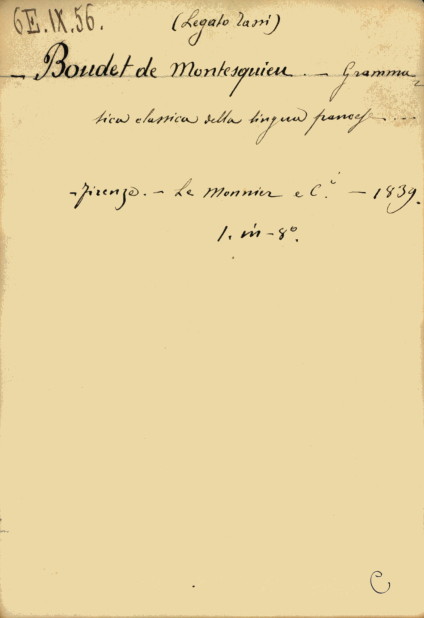 6E.IX.56.
(Legato Tassi)
- Boudet de Montesquieu. - Gramma-
tica classica della lingua francese ...
- Firenze. - Le Monnier e C.i - 1839.
1. in-8º.
C